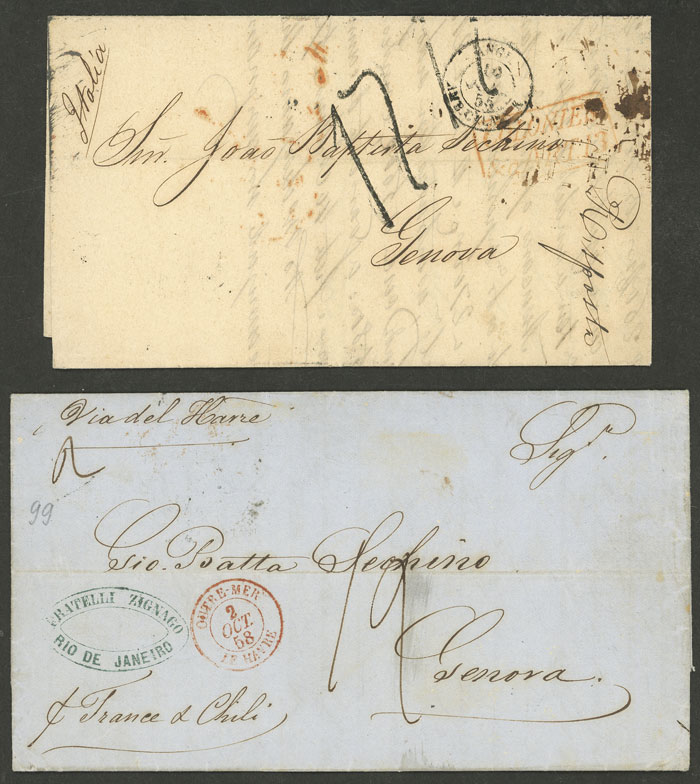 Italia
Snr. João Baptista Sechino
Genova
17
ANGL.
55
P. Risposta
Via del Havre
Sigr.
99
Gio. Batta Sechino
Genova.
FRATELLI ZIGNAGO
RIO DE JANEIRO
OUTRE-MER
2
OCT.
58
LE HAVRE
p France d Chili